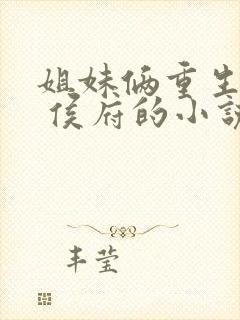 姐妹俩重生
侯府的小说
丰莹